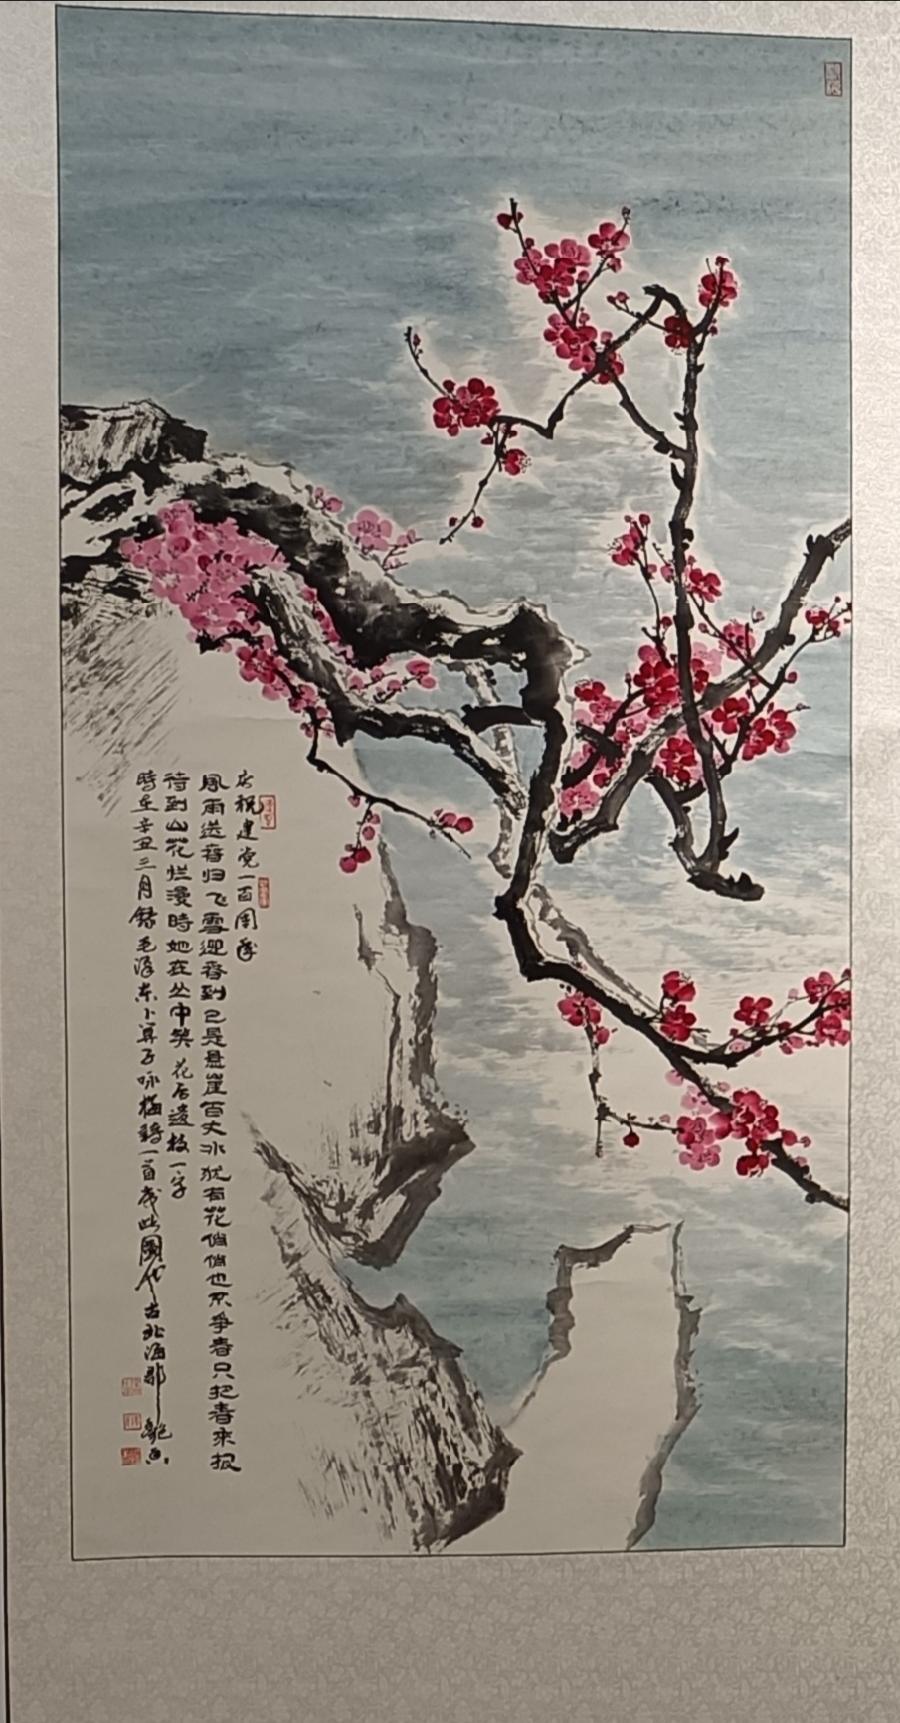 庆祝建党一百周年
風雨送春归飞雪迎春到已是悬崖百丈冰犹有花俏俏也不争春只把春来报
待到山花烂漫時她在丛中笑 花后遗枝一字
時在辛丑三月錄毛泽东卜算子咏梅詞一首成此圖 古北海郡 画